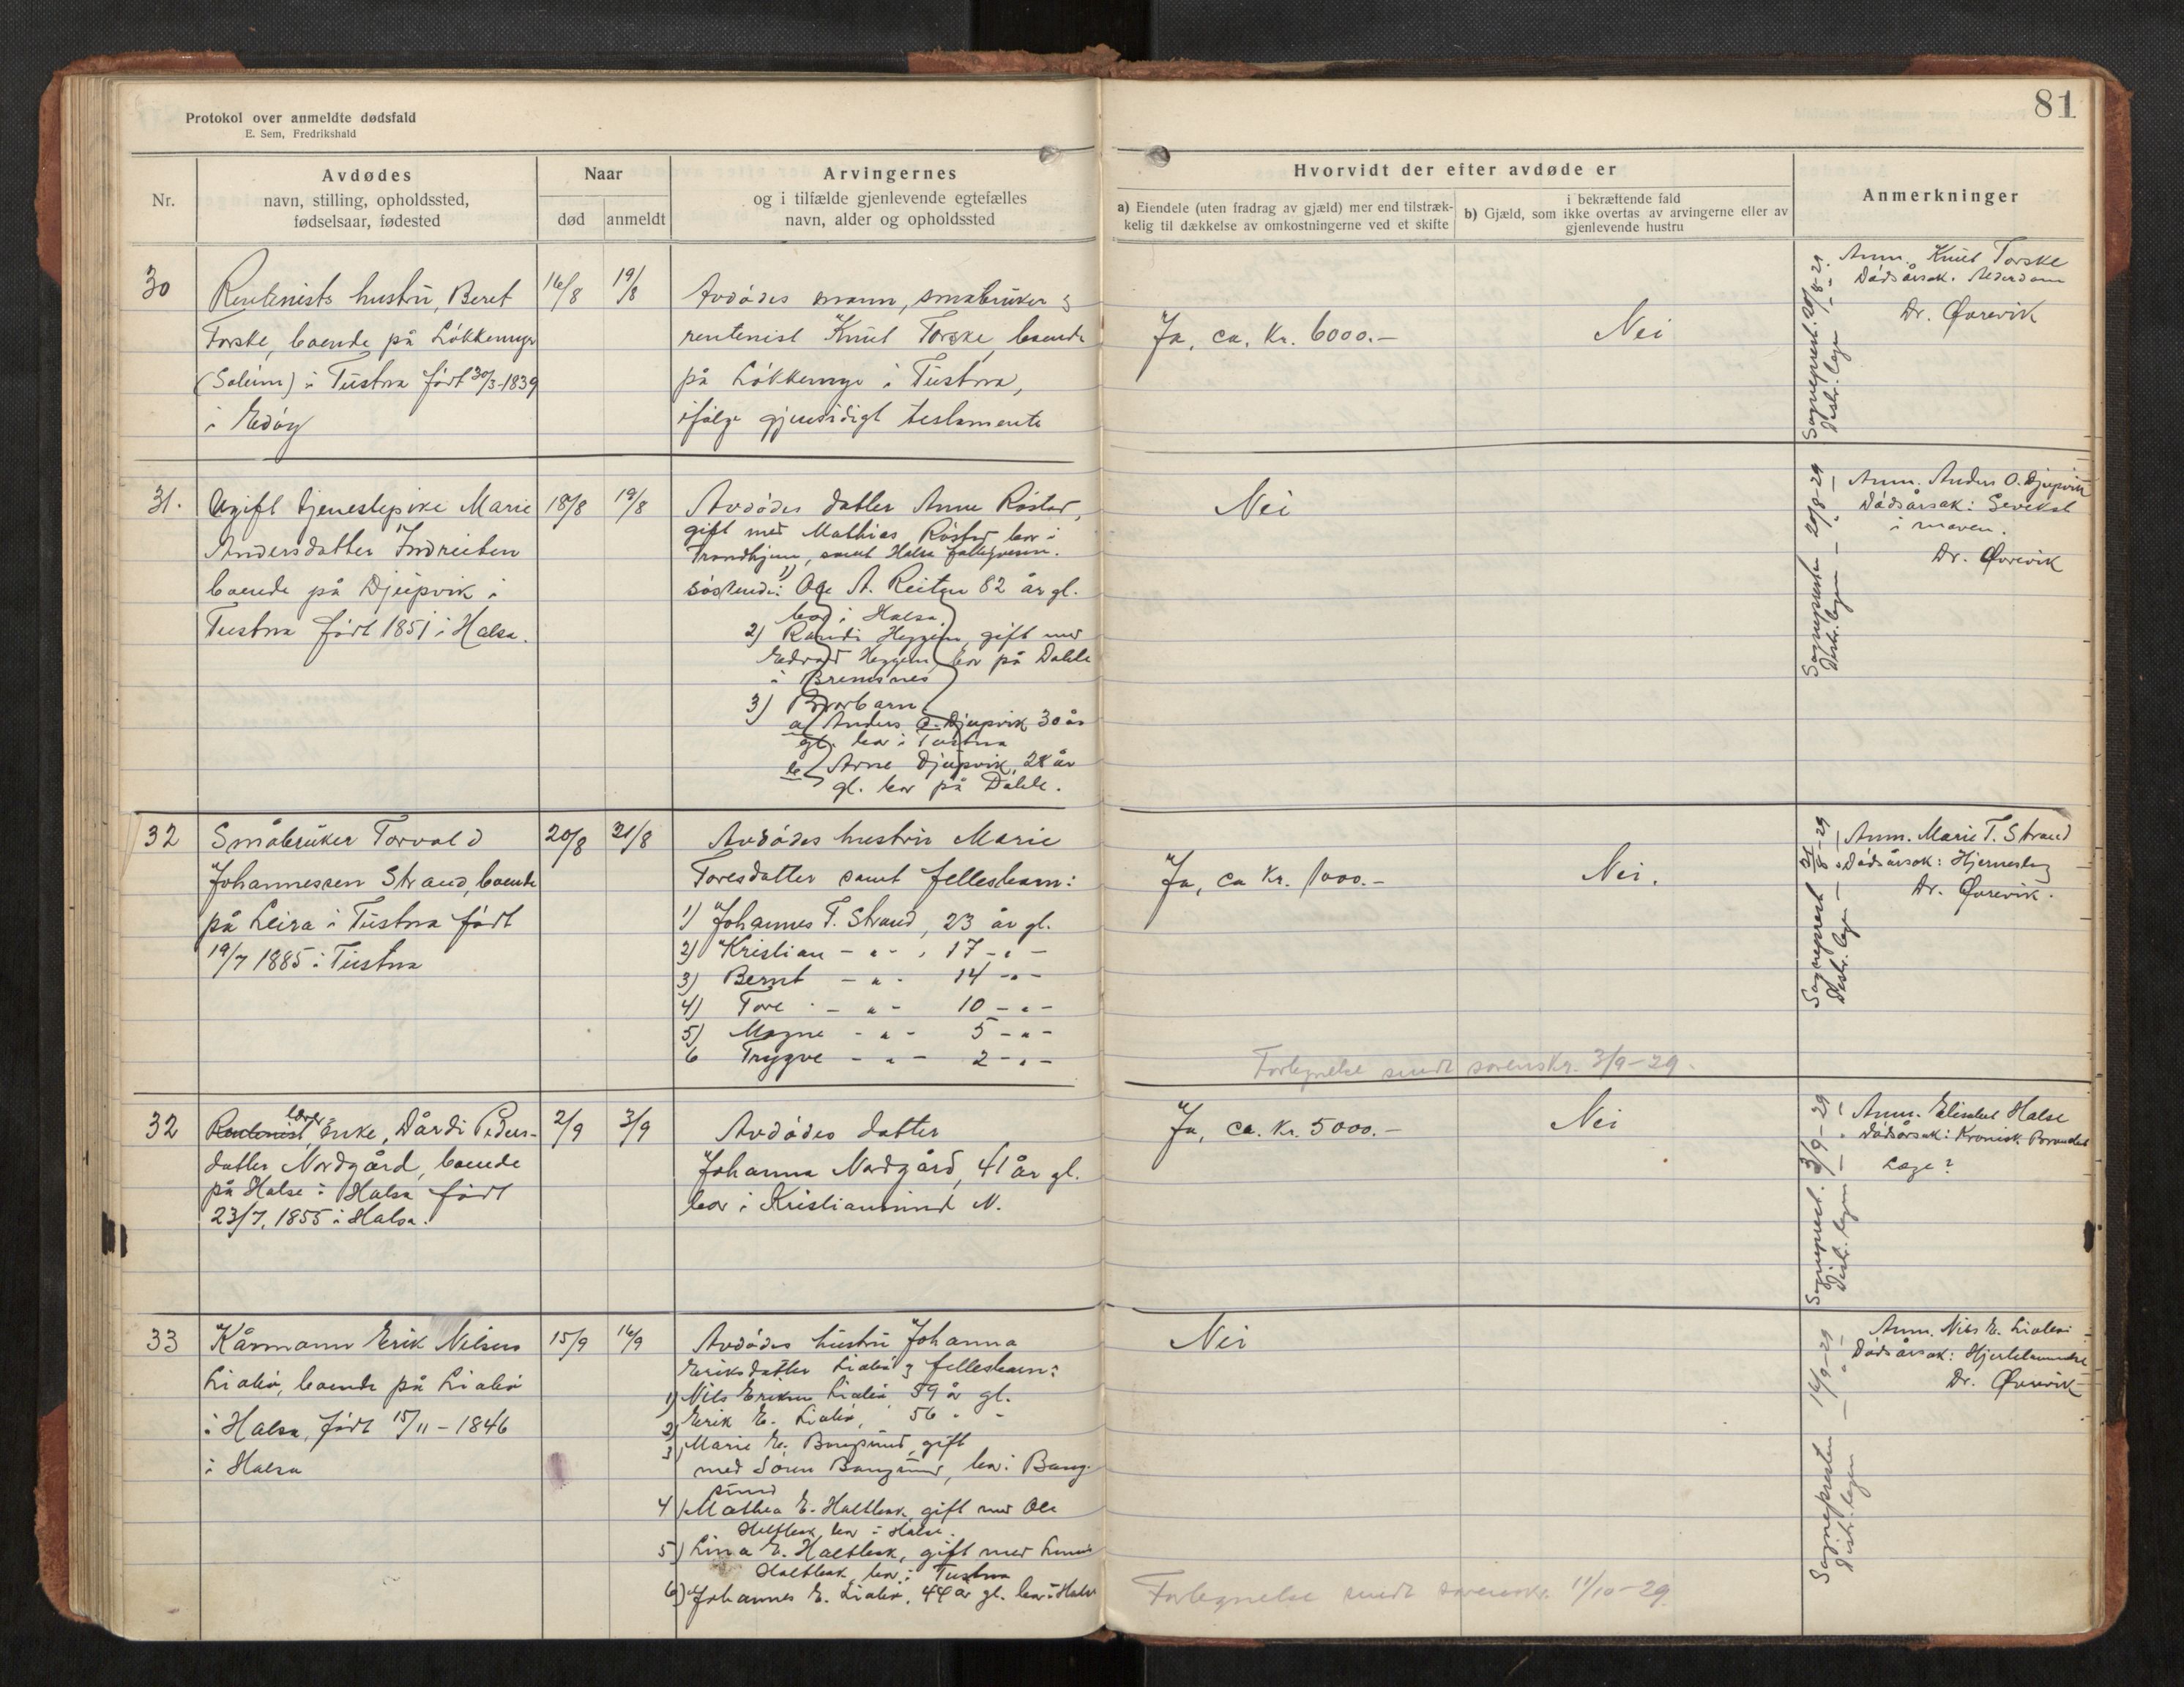 Protokol over anmeldte dødsfald
E. Sem, Fredrikshald
81
Nr.
Avdødes
navn, stilling, opholdssted,
fødselsaar, fødested
Naar
død
anmeldt
Arvingernes
og i tilfælde gjenlevende egtefælles
navn, alder og opholdssted
Hvorvidt der efter avdøde er
a) Eiendele (uten fradrag av gjæld) mer end tilstræk-
kelig til dækkelse av omkostningerne ved et skifte
i bekræftende fald
b) Gjæld, som ikke overtas av arvingerne eller av
gjenlevende hustru
Anmerkninger
30
Rentenists hustru, Beret
Torske, boende på Løkkemyr
(Soleim) i Tustna født 30/3-1839
i Edøy
16/8
19/8
Avdødes mann, småbruker og
rentenist Knut Torske, boende
på Løkkemyr i Tustna,
ifølge gjensidigt testamente
Ja, ca. Kr. 6000.-
Nei
Sogneprest. 20/8-29.
Distr. lege - " -
Anm. Knut Torske
Dødsårsak. Alderdom
Dr. Øvrevik
31.
Ugift tjenestepike Marie
Andersdatter Indreiten
boende på Djupvik i
Tustna født 1851 i Halsa.
18/8
19/8
Avdødes datter Anne Røstad,
gift med Mathias Røstad bor i
Trondhjem, samt
søskende: 1) Ole A. Reiten 82 år gl.
bor i Halsa.
2) Randi Heggem, gift med
Edvard Heggem, bor på Dahle
i Bremsnes
3) Brorbarn
a) Anders O. Djupvik 30 år
gl. bor i Tustna
b) Arne Djupvik, 28 år
gl. bor på Dahle.
Nei
Sognepresten 20/8-29
Distr. legen - " -
Anm. Anders O. Djupvik
Dødsårsak: Svekst
i maven.
Dr. Øvrevik
32
Småbruker Torvald
Johannessen Strand, boende
på Leira i Tustna født
19/7 1885 i Tustna
20/8
21/8
Avdødes hustru Marie
Toresdatter samt fellesbarn:
1) Johannes T. Strand, 23 år gl.
2) Kristian - " - , 17 - " -
3) Bernt - " - 14 - " -
4) Tore - " - 10 - " -
5) Magne - " - 5 - " -
6 Trygve - " - 2 - " -
Ja, ca Kr. 1000.-
Nei.
Fortegnelse sendt sorenskr. 3/9-29.
Sogneprest 21/8-29
Distr. lege - " -
Anm. Marie T. Strand
Dødsårsak: Hjerneslag
Dr. Øvrevik.
32
Rentenist, lærer Enke, Dårdi Peders-
datter Nordgård, boende
på Halse i Halsa født
23/7, 1855 i Halsa.
2/9
3/9
Avdødes datter
Johanna Nordgård, 41 år gl.
bor i Kristiansund N.
Ja, ca. Kr. 5000.-
Nei
Sogneprest. 3/9-29
Distr. legen - " -
Anm. Elisabet Halse
Dødsårsak: Kronisk
Læge?
33
Kårmann Erik Nilsen
Liabø, boende på Liabø
i Halsa, født 15/11-1846
i Halsa
15/9
16/9
Avdødes hustru Johanna
Eriksdatter Liabø og fellesbarn:
1) Nils Eriksen Liabø, 59 år gl.
2) Erik E. Liabø, 56 " -
3) Marie E. Bangsund, gift
med Søren Bangsund, bor i Bang-
sund
4) Mathea E. Haltbak, gift med Ole
Haltbak, bor i Halsa.
5) Lina E. Haltbak, gift med
Haltbak, bor i Tustna
6) Johannes E. Liabø, 44 år gl. bor i Halsa
Nei
Fortegnelse sendt sorenskr. 11/10-29.
Sognepresten - 16/9-29
Distr. legen - " -
Anm. Nils E. Liabø
Dødsårsak: Hjertelammelse
Dr. Øvrevik